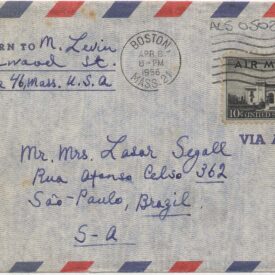 ALS 0502
RN TO M. Levin
lwood St.
46, Mass. U.S.A
BOSTON
APR 6
8-PM
1956
MASS.
AIR M
10¢ UNITED
VIA A
Mr. Mrs. Lasar Segall
Rua Afonso Celso 362
São-Paulo, Brazil.
S-A